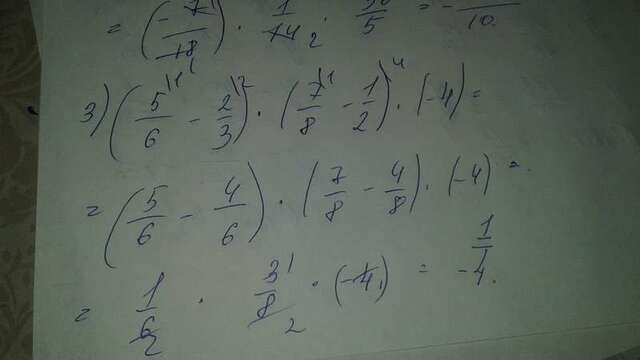 = (-7/18) · 1/14 2 · 36/5 = - /10
3) (5/6 \1 - 2/3 \2) · (7/8 \1 - 1/2 \4) · (-4) =
= (5/6 - 4/6) · (7/8 - 4/8) · (-4) =
= 1/6 2 · 3 1/8 2 · (-4 1) = -1/4